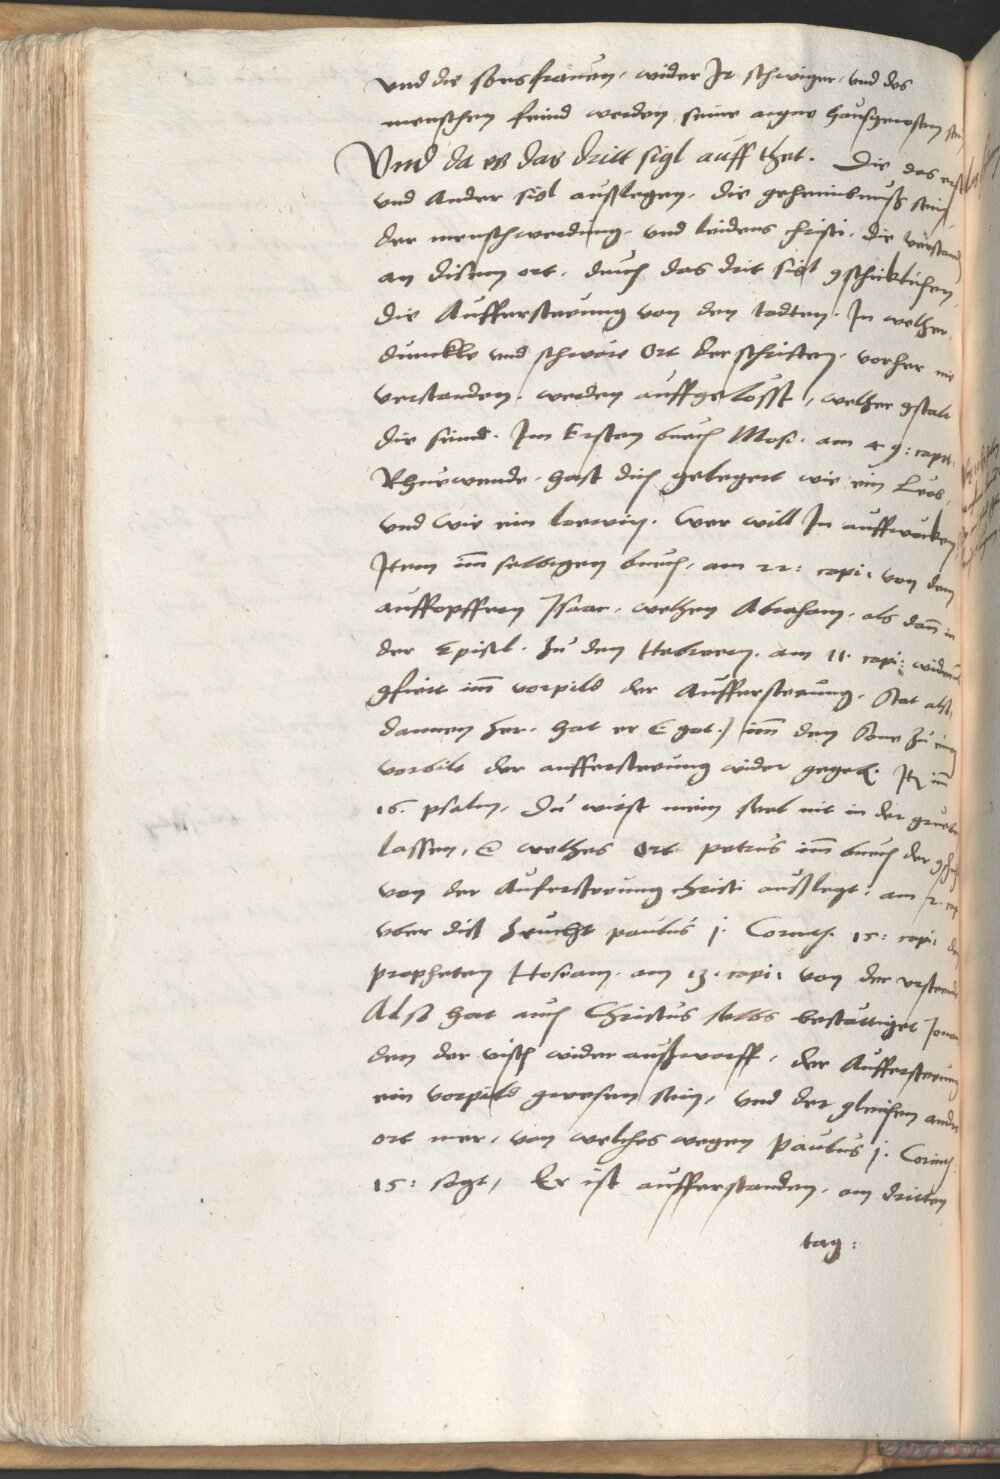 vnd die sonsfrauen, wider Ir schwiger, vnd des
menschen feind werden, seine aigne haußgenossen sein
Vnd da es das dritt sigl auff thet. Die das erst
vnd Ander sigl außlegen, die gehaimbnuß sein
der menschwerdung, vnd leidens christi, die verstand
an disem ort, durch das drit sigl gschicklichen,
die Auffersteeung von den todten. In welher
dunckle vnd schwäre Ort der schrifften, vorher nit
verstanden, werden auffgelösst, welher gstalt
die seind. Im Ersten buech Mose. am 49: capit.
Rhuewende, hast dich gelegert wie ein Leeb,
vnd wie ein loewin. Wer will In auffwecken
Item im selbigen buech, am 22: capi: von dem
auffopffern Isaac, welhen Abraham, als dann in
der Epistl. Zu den Hebreern. am 11. capi: widerumb
gfiert im vorpild der Auffersteeung. Stat also,
dannen her, hat er (got) im den Sone zu einem
vorbild der aufferstewung wider gegeben. Itē im
16. psalm, Du wirst mein seel nit in der gruebn
lassen, welhes Ort petrus im buech der gschich
von der Auferstewung christi außlegt: am 2. cap
vber diß Zeucht paulus j. Corinth. 15: capi: den
propheten Hoseam. am 13. capi: von der vrsteend
Also hat auch Christus selbs bestättiget Jonam
den der visch wider außworff, der Auffersteeung
ein vorpild gwesen sein, vnd der gleichen andre
ort mer, von welches wegen Paulus j. Corinth:
15: sagt, Er ist aufferstanden, am dritten
tag: